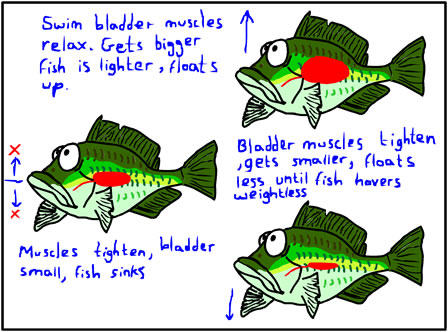 Swim bladder muscles
relax. Gets bigger
fish is lighter, floats
up.
Bladder muscles tighten
, gets smaller, floats
less until fish hovers
weightless
Muscles tighten, bladder
small, fish sinks